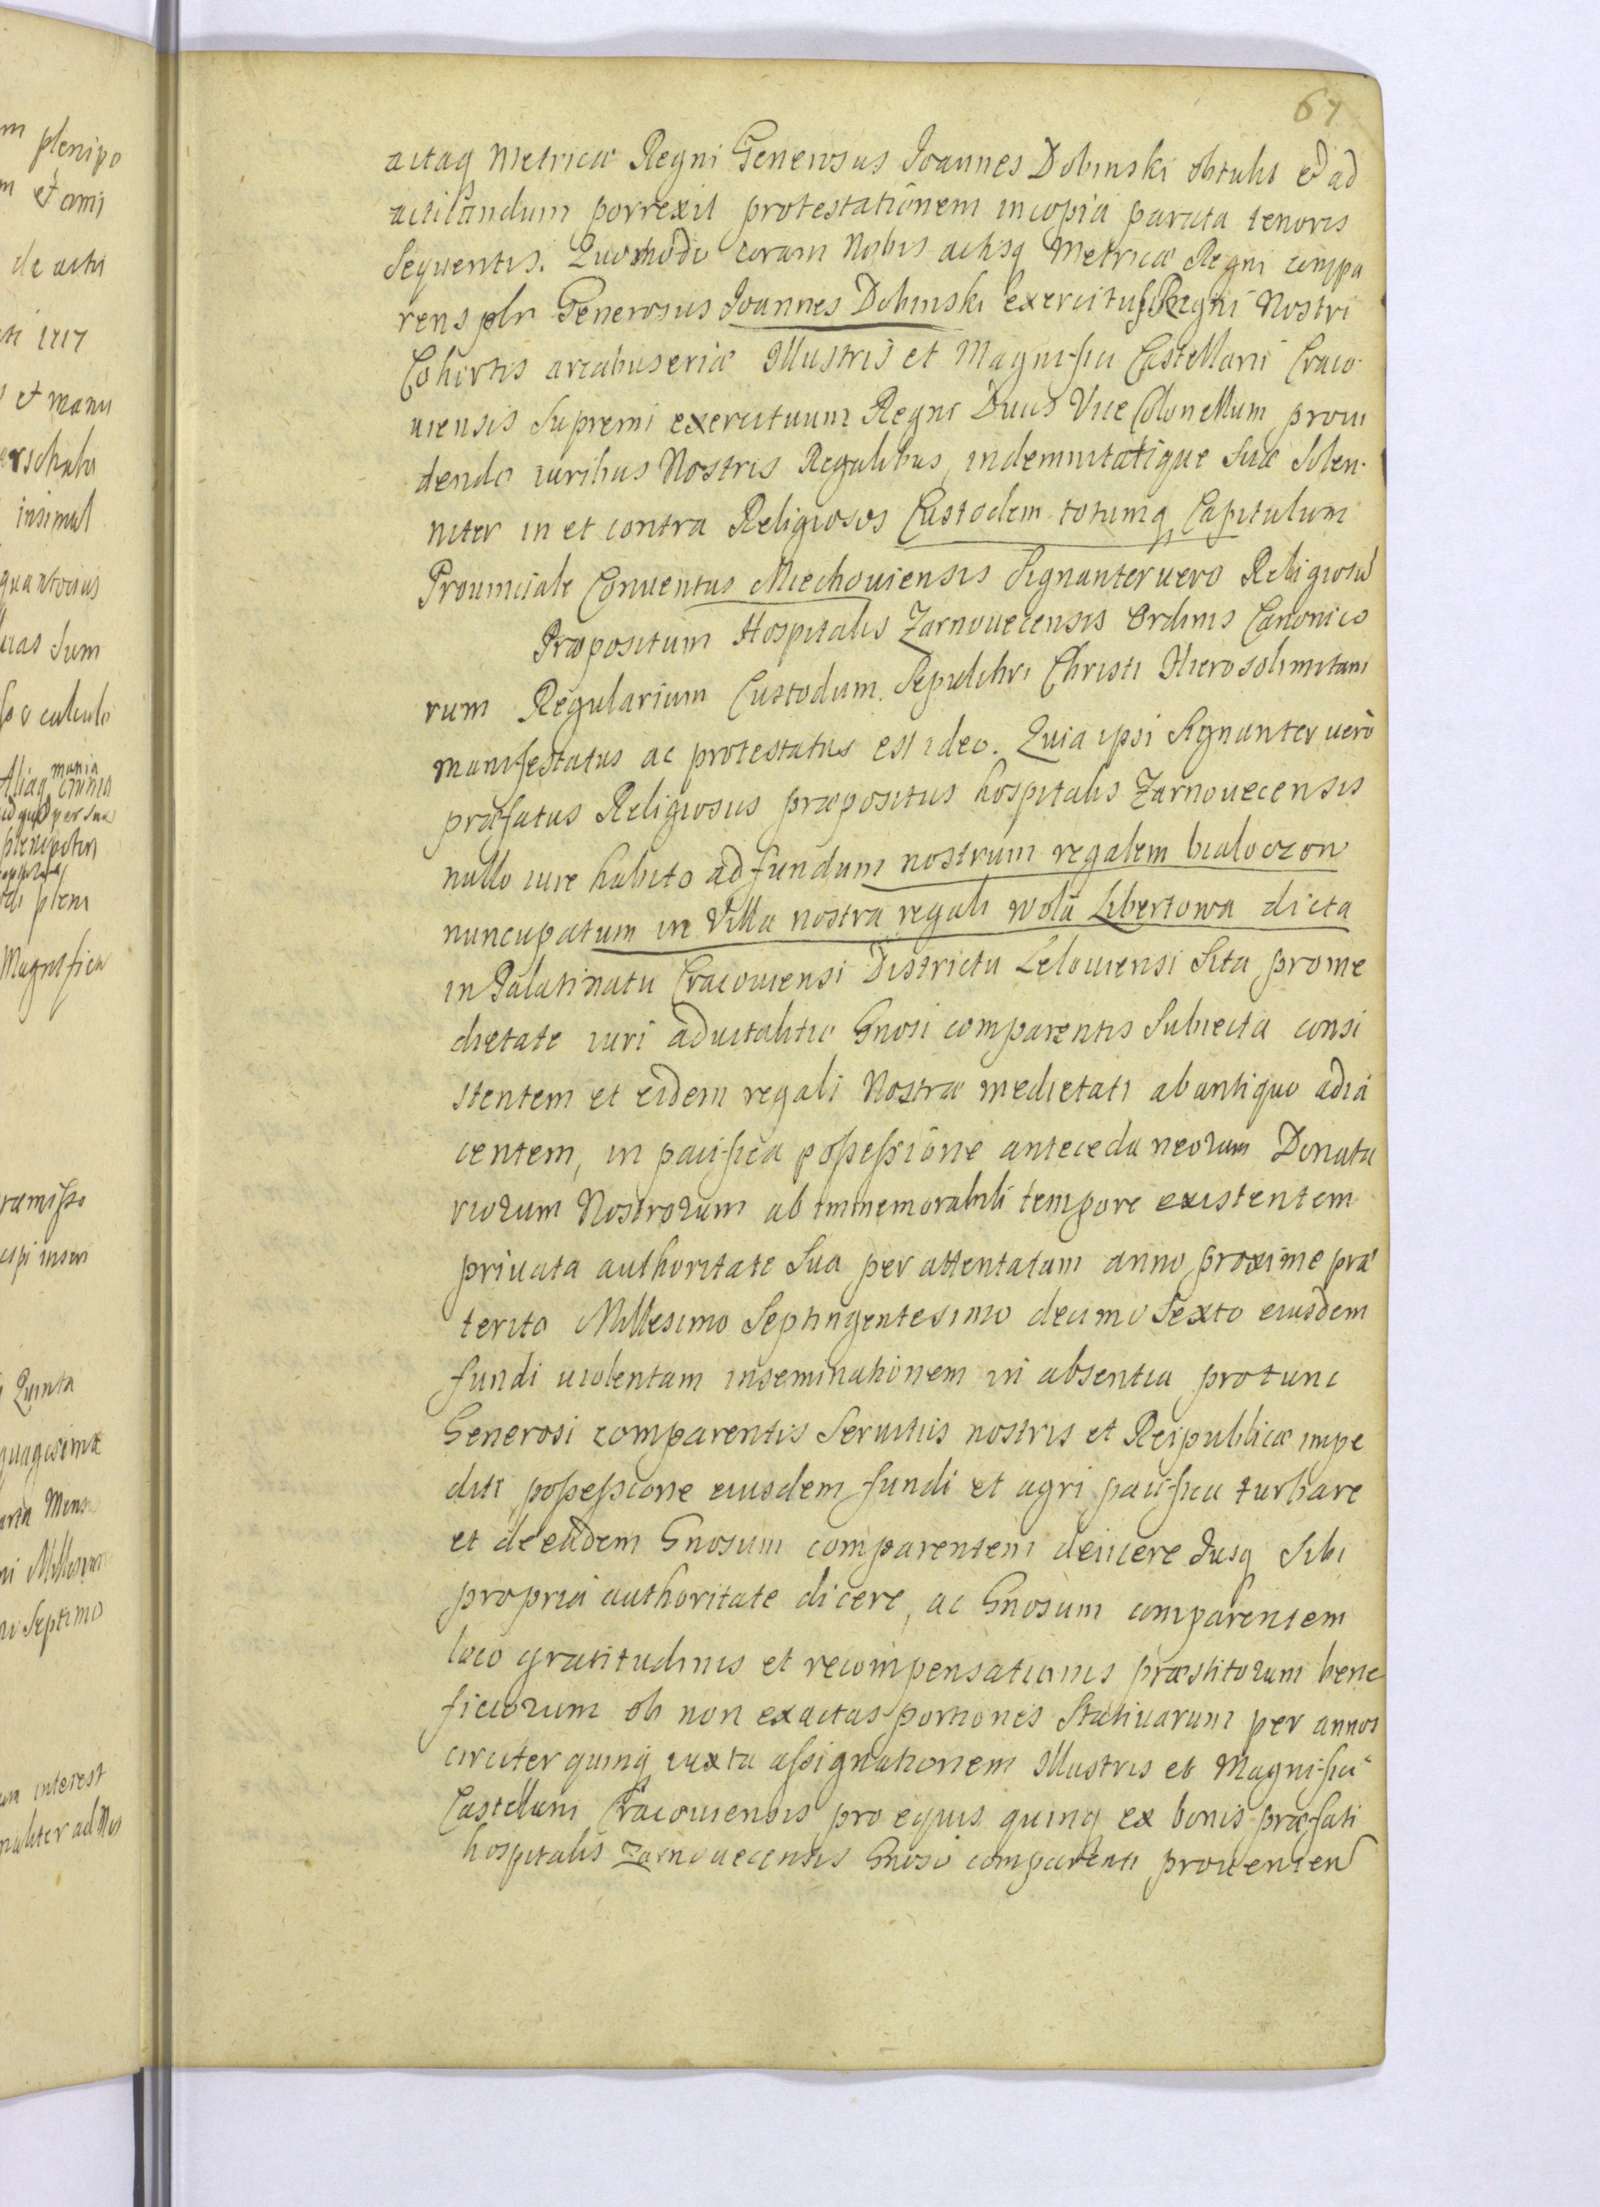 67
actaq Metricæ Regni Generosus Joannes Dobinski obtulit et ad
acticandum porrexit protestationem in copia parata tenoris
Sequentis. Quomodo coram Nobis actisq Metricæ Regni compa
rens plr Generosus Joannes Dobinski exercitus Regni Nostri
Cohortis arcabuseriæ Illustris et Magnifici Castellani Craco
viensis Supremi exercituum Regni Ducis Vice Colonellum provi
dendo iuribus Nostris Regalibus, indemnitatique Suæ Solen
niter in et contra Religiosos Custodem totumq Capitulum
Provinciale Conventus Miechoviensis Signanter vero Religiosum
Præpositum Hospitalis Zarnovecensis Ordinis Canonico
rum Regularium Custodum Sepulchri Christi Hierosolimitani
manifestatus ac protestatus est ideo. Quia ipsi Signanter verò
præfatus Religiosus præpositus hospitalis Zarnovecensis
nullo iure habito ad fundum nostrum regalem bialoczon
nuncupatum in Villa nostra regali Wola Libertowa dicta
in Palatinatu Cracoviensi Districtu Leloviensi Sita pro me
dietate iuri advitalitio Gnosi comparentis Subiecta consi
stentem et eidem regali Nostræ medietati ab antiquo adia
centem, in pacifica possessione antecedaneorum Donata
riorum Nostrorum ab immemorabili tempore existentem
privata authoritate Sua per attentatam anno proxime præ
terito Millesimo Septingentesimo decimo Sexto eiusdem
fundi violentam inseminationem in absentia protunc
Generosi comparentis Servitiis nostris et Reipublicæ impe
diti possessione eiusdem fundi et agri pacifica turbare
et de eadem Gnosum comparentem deiicere Jusq Sibi
propria authoritate dicere, ac Gnosum comparentem
loco gratitudinis et recompensationis præstitorum bene
ficiorum ob non exactas portiones Stativarum per annos
circiter quinq iuxta assignationem Illustris et Magnifici
Castellani Cracoviensis pro equis quinq ex bonis præfati
hospitalis Zarnovecensis Gnoso comparenti provenien